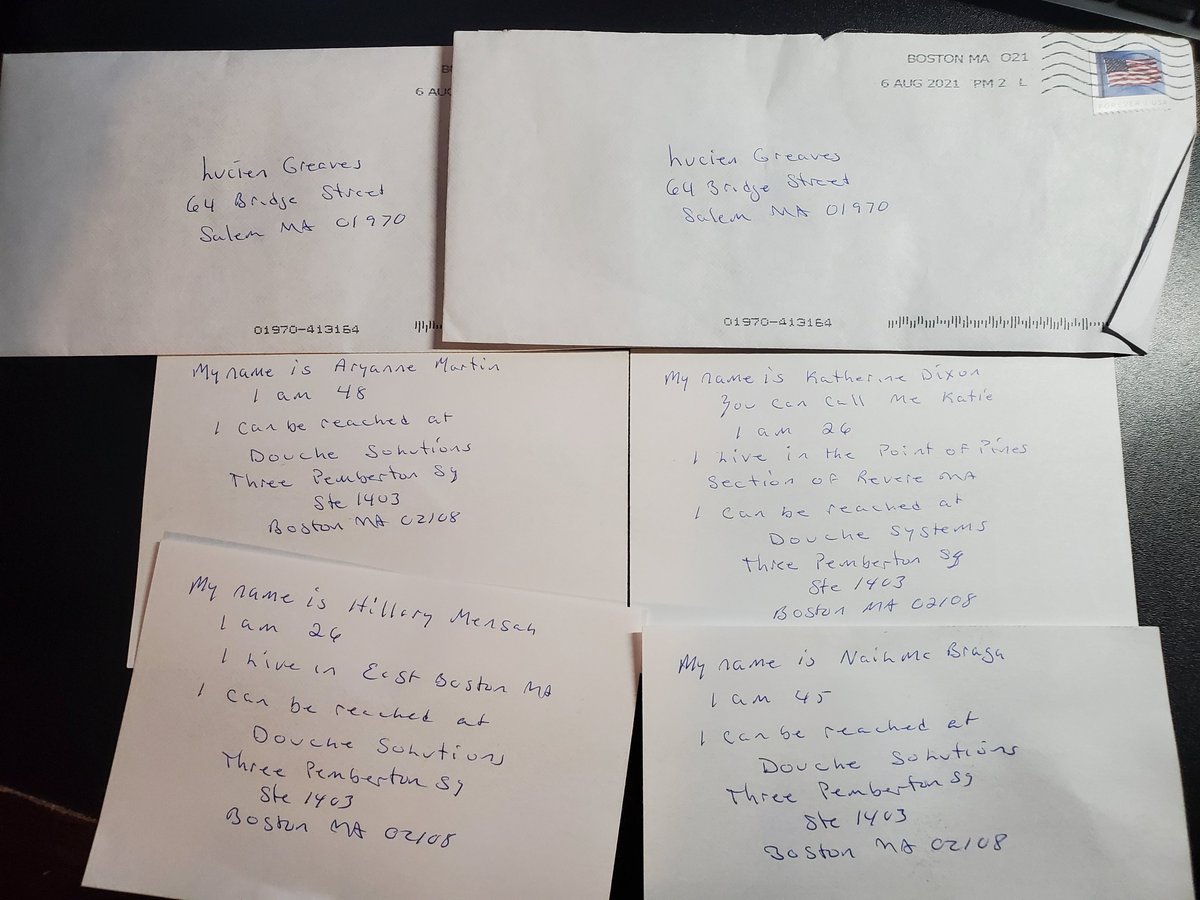 B
6 AUG
Lucien Greaves
64 Bridge Street
Salem MA 01970
01970-413164
BOSTON MA 021
6 AUG 2021 PM 2 L
FOREVER / USA
Lucien Greaves
64 Bridge Street
Salem MA 01970
01970-413164
My name is Aryanne Martin
I am 48
I can be reached at
Douche Solutions
Three Pemberton Sq
Ste 1403
Boston MA 02108
My name is Katherine Dixon
You can call me Katie
I am 26
I live in the Point of Pines
Section of Revere MA
I can be reached at
Douche Systems
Three Pemberton Sq
Ste 1403
Boston MA 02108
My name is Hillary Mensah
I am 26
I live in East Boston MA
I can be reached at
Douche Solutions
Three Pemberton Sq
Ste 1403
Boston MA 02108
My name is Naihma Braga
I am 45
I can be reached at
Douche Solutions
Three Pemberton Sq
Ste 1403
Boston MA 02108